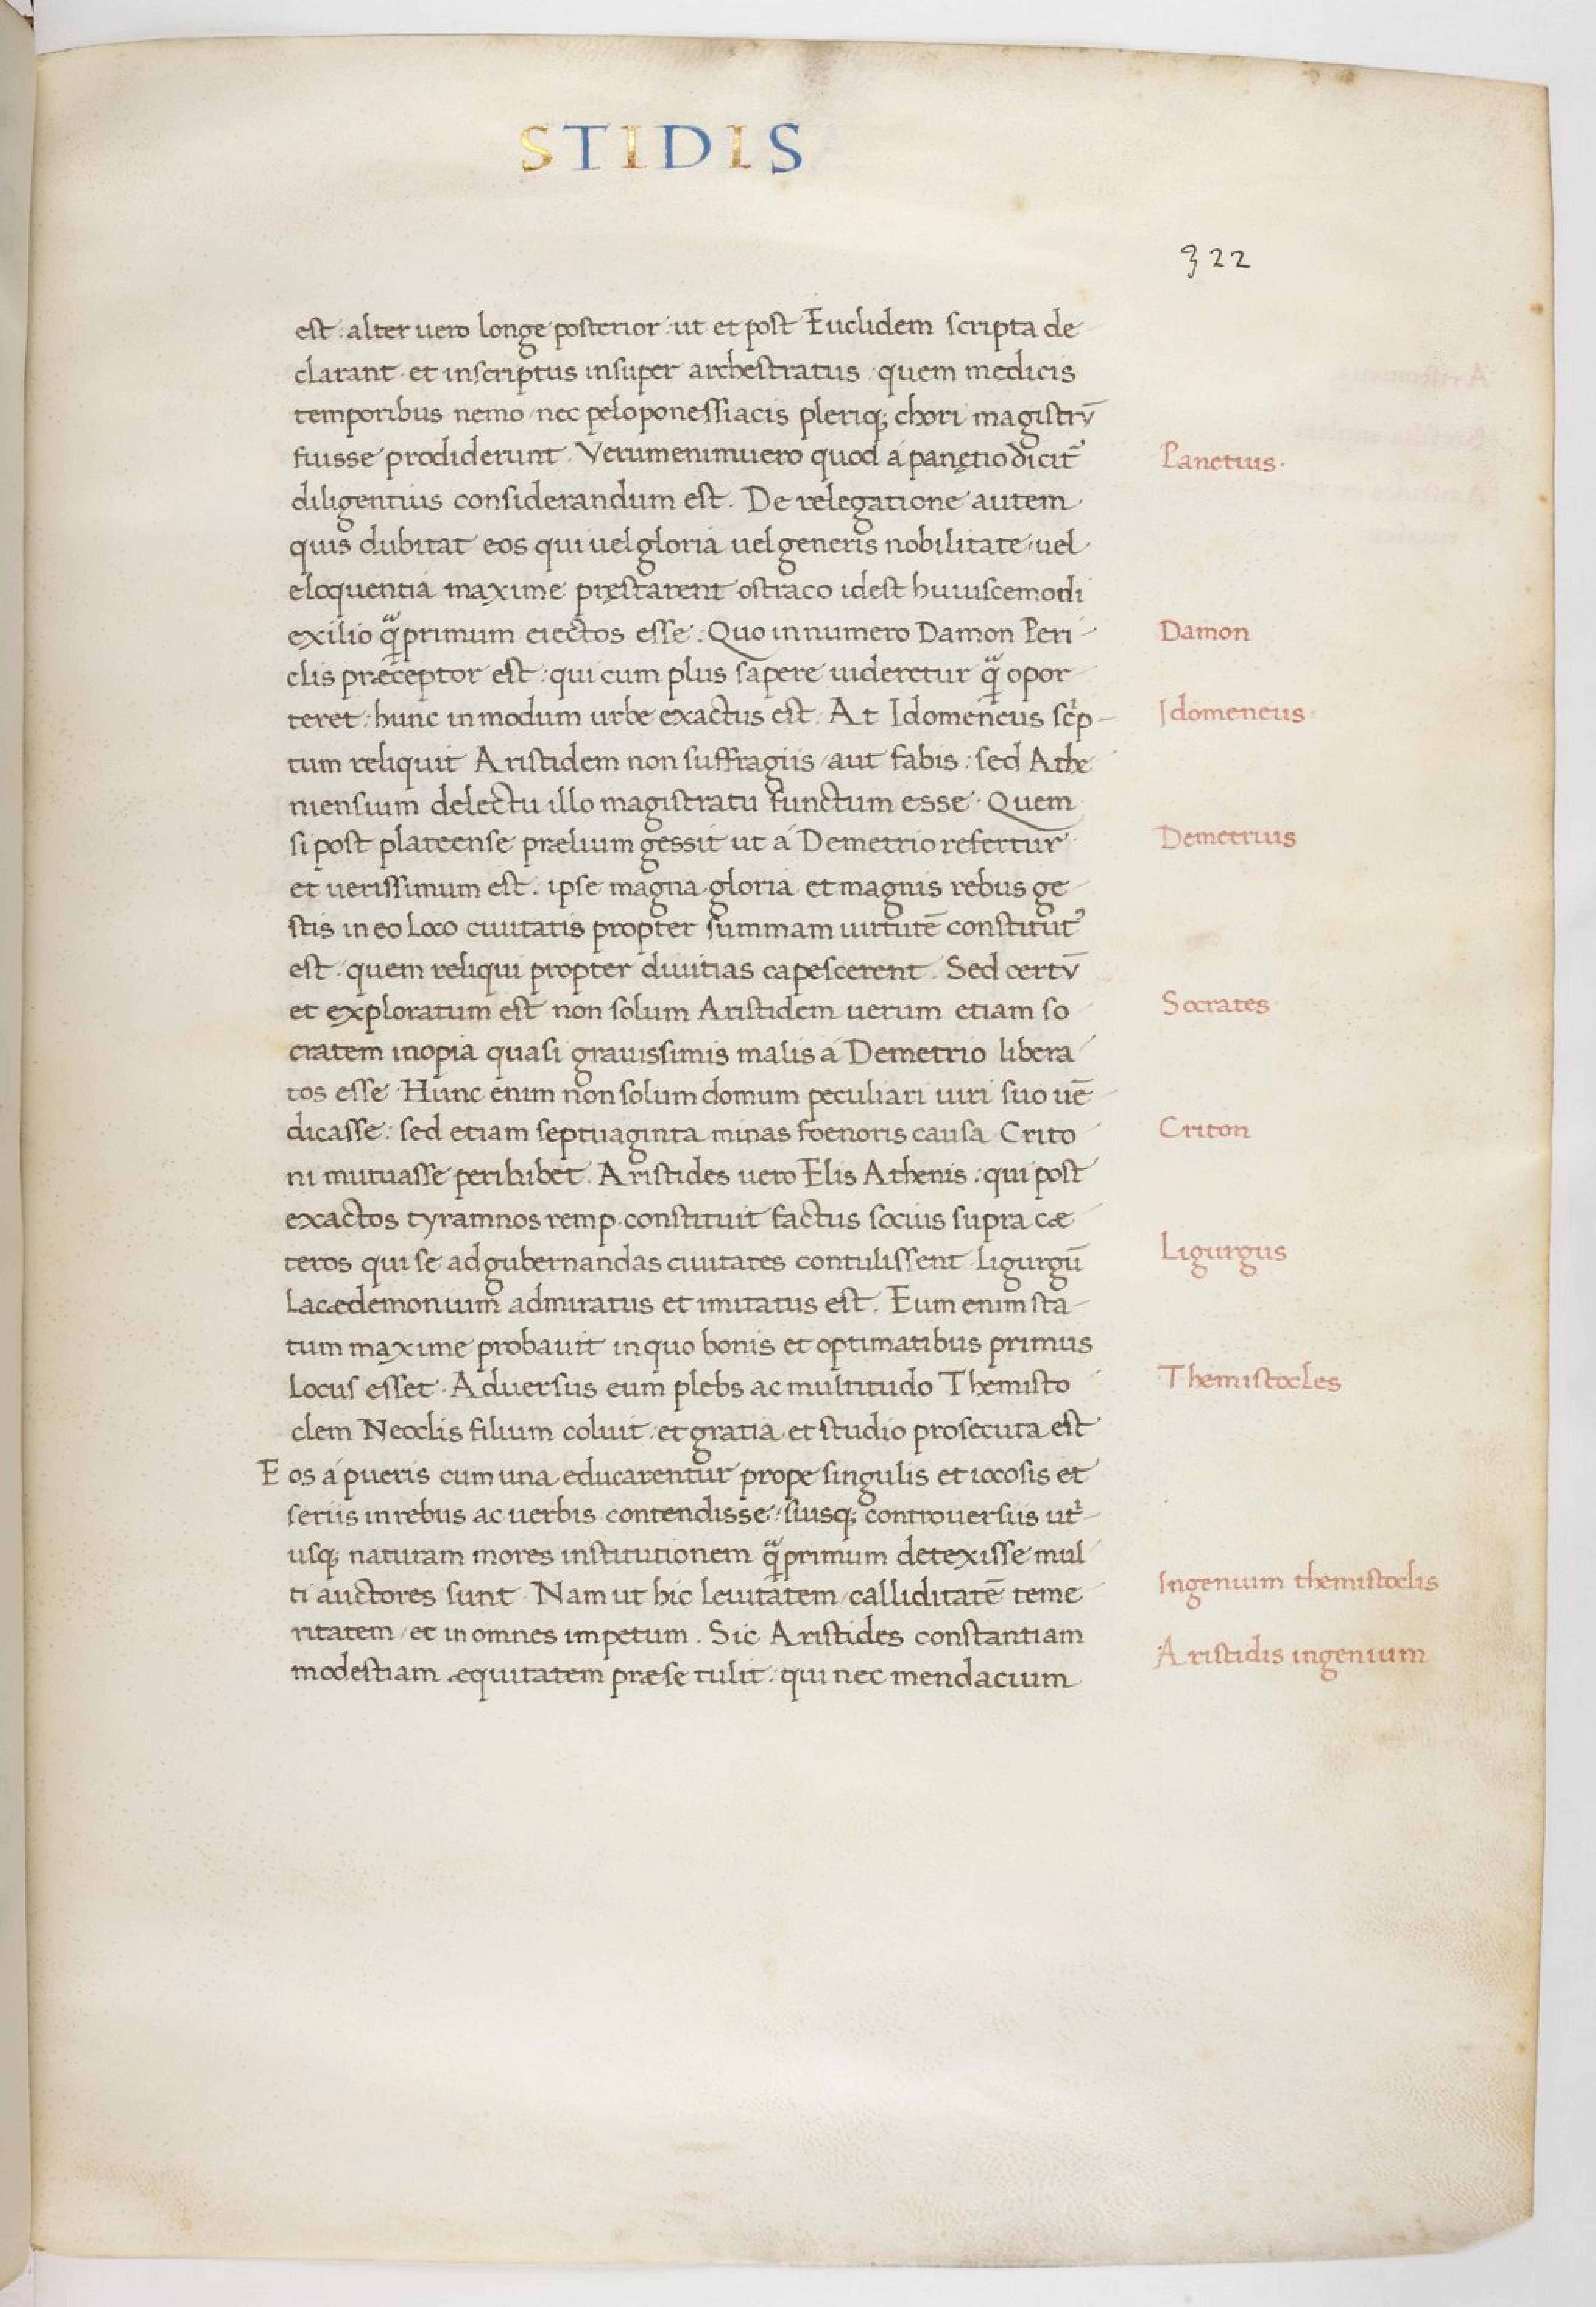 STIDIS
322
est: alter uero longe posterior: ut et post Euclidem scripta de
clarant. et inscriptus insuper archestratus: quem medicis
temporibus nemo, nec peloponessiacis pleriq; chori magistrū
fuisse prodiderunt. Verumenimuero quod á panętio dicit᷑
Panetius.
diligentius considerandum est. De relegatione autem
quis dubitat eos qui uel gloria uel generis nobilitate, uel
eloquentia maxime pręstarent ostraco idest huiuscemodi
exilio q̈̃primum eiectos esse: Quo in numero Damon Peri-
Damon
clis præceptor est: qui cum plus sapere uideretur q̃ opor-
teret: hunc in modum urbe exactus est. At Idomeneus scͥp-
Idomeneus
tum reliquit Aristidem non suffragiis, aut fabis: sed Athe
niensium delectu illo magistratu functum esse. Quem
si post plateense prælium gessit ut á Demetrio refertur
Demetrius
et uerissimum est. ipse magna gloria et magnis rebus ge
stis in eo loco ciuitatis propter summam uirtutē constitut᷒
est: quem reliqui propter diuitias capescerent. Sed certū
et exploratum est non solum Aristidem uerum etiam so
Socrates
cratem inopia quasi grauissimis malis á Demetrio libera
tos esse. Hunc enim non solum domum peculiari uiri suo uē
dicasse: sed etiam septuaginta minas foenoris causa Crito
Criton
ni mutuasse perhibet. Aristides uero Elis Athenis: qui post
exactos tyramnos remp. constituit factus socius supra cæ
teros qui se ad gubernandas ciuitates contulissent Ligurgū
Ligurgus
Lacædemonium admiratus et imitatus est. Eum enim sta-
tum maxime probauit in quo bonis et optimatibus primus
locus esset. Aduersus eum plebs ac multitudo Themisto
Themistocles
clem Neoclis filium coluit: et gratia et studio prosecuta est
Eos á pueris cum una educarentur prope singulis et iocosis et
seriis in rebus ac uerbis contendisse: siusq; controuersiis utͥ-
usq; naturam mores institutionem q̃primum detexisse mul
ti auctores sunt. Nam ut hic leuitatem, calliditatē teme
Ingenium themistoclis
ritatem, et in omnes impetum. Sic Aristides constantiam
Aristidis ingenium
modestiam æquitatem præse tulit: qui nec mendacium